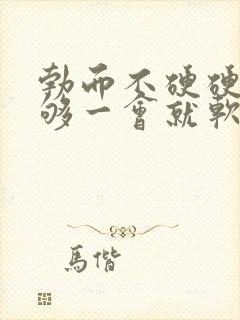 勃而不硬硬
够一會就軟
馬偕